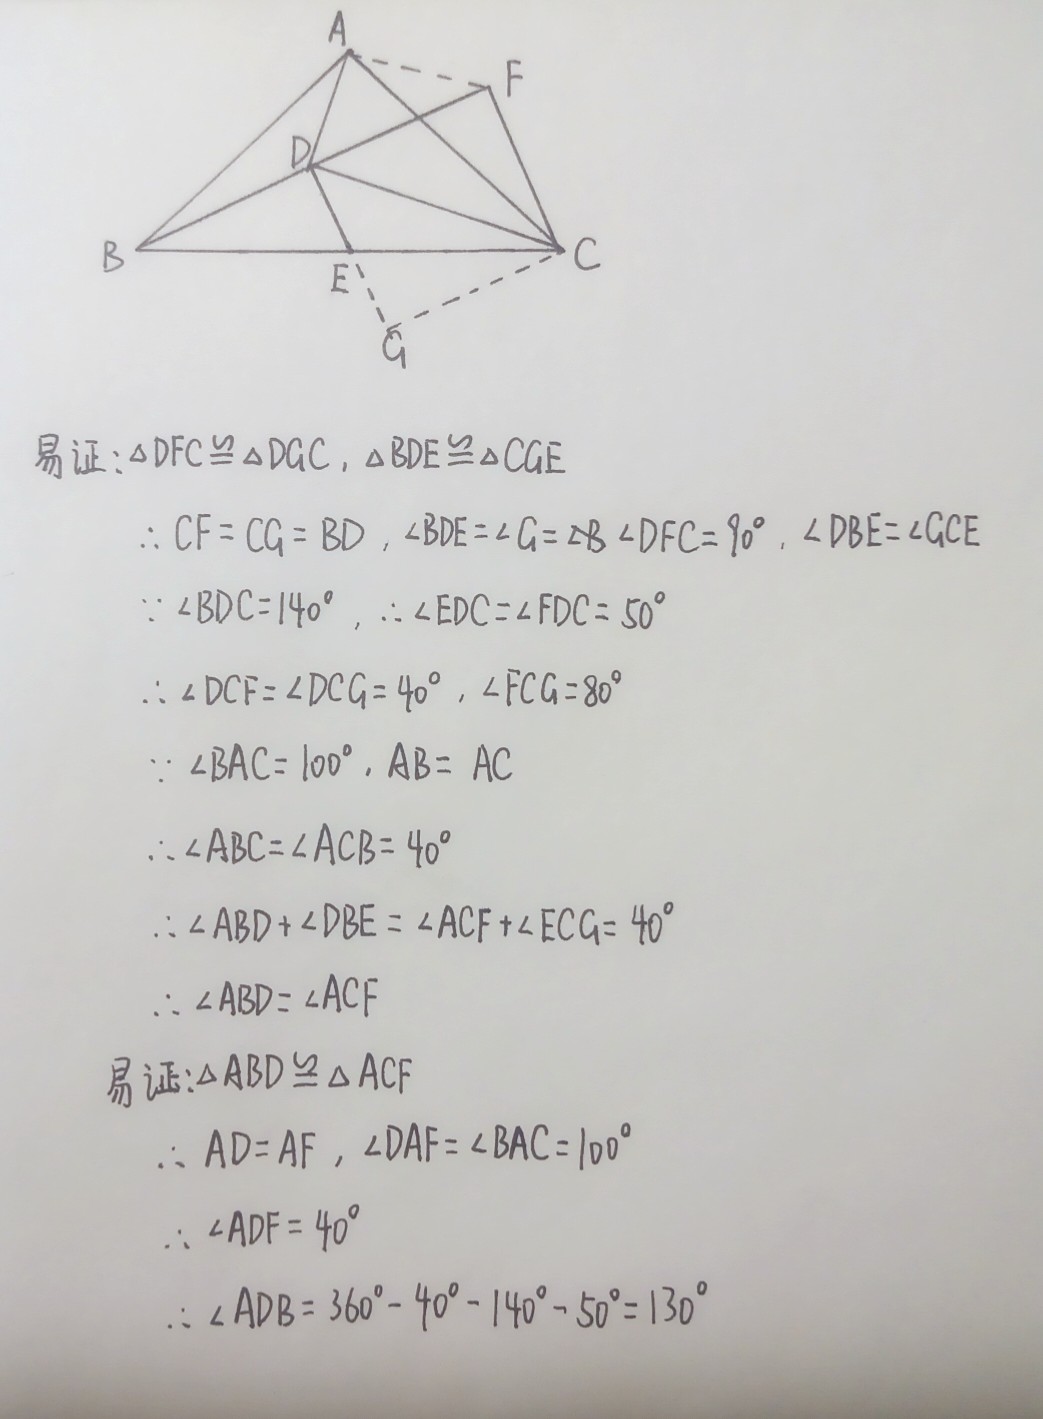 A
F
D
B
E
C
G
易证:△DFC≌△DGC, △BDE≌△CGE
∴ CF=CG=BD, ∠BDE=∠G= ∠DFC=90°, ∠DBE=∠GCE
∵ ∠BDC=140°, ∴∠EDC=∠FDC=50°
∴ ∠DCF=∠DCG=40°, ∠FCG=80°
∵ ∠BAC=100°, AB=AC
∴ ∠ABC=∠ACB=40°
∴ ∠ABD+∠DBE=∠ACF+∠ECG=40°
∴ ∠ABD=∠ACF
易证:△ABD≌△ACF
∴ AD=AF, ∠DAF=∠BAC=100°
∴ ∠ADF=40°
∴ ∠ADB=360°-40°-140°-50°=130°